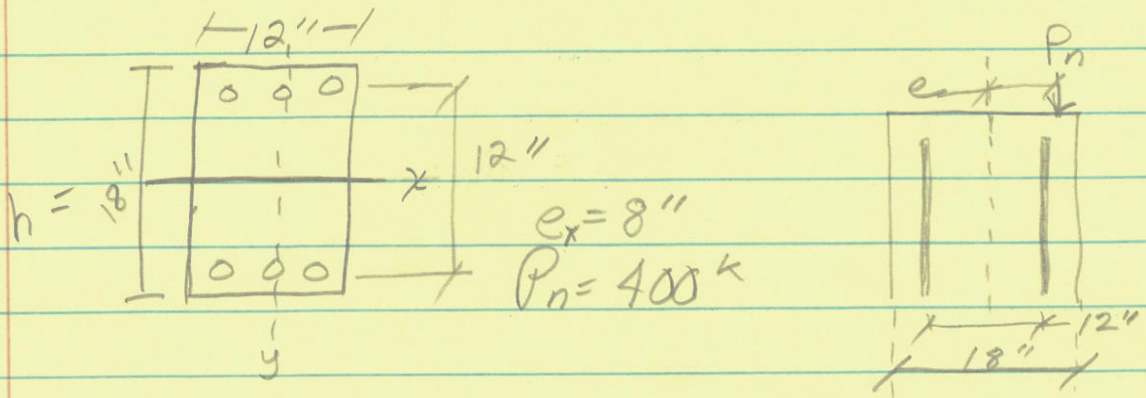 12"
h = 18"
12"
x
y
eₓ = 8"
Pₙ = 400ᵏ
Pₙ
e
12"
18"